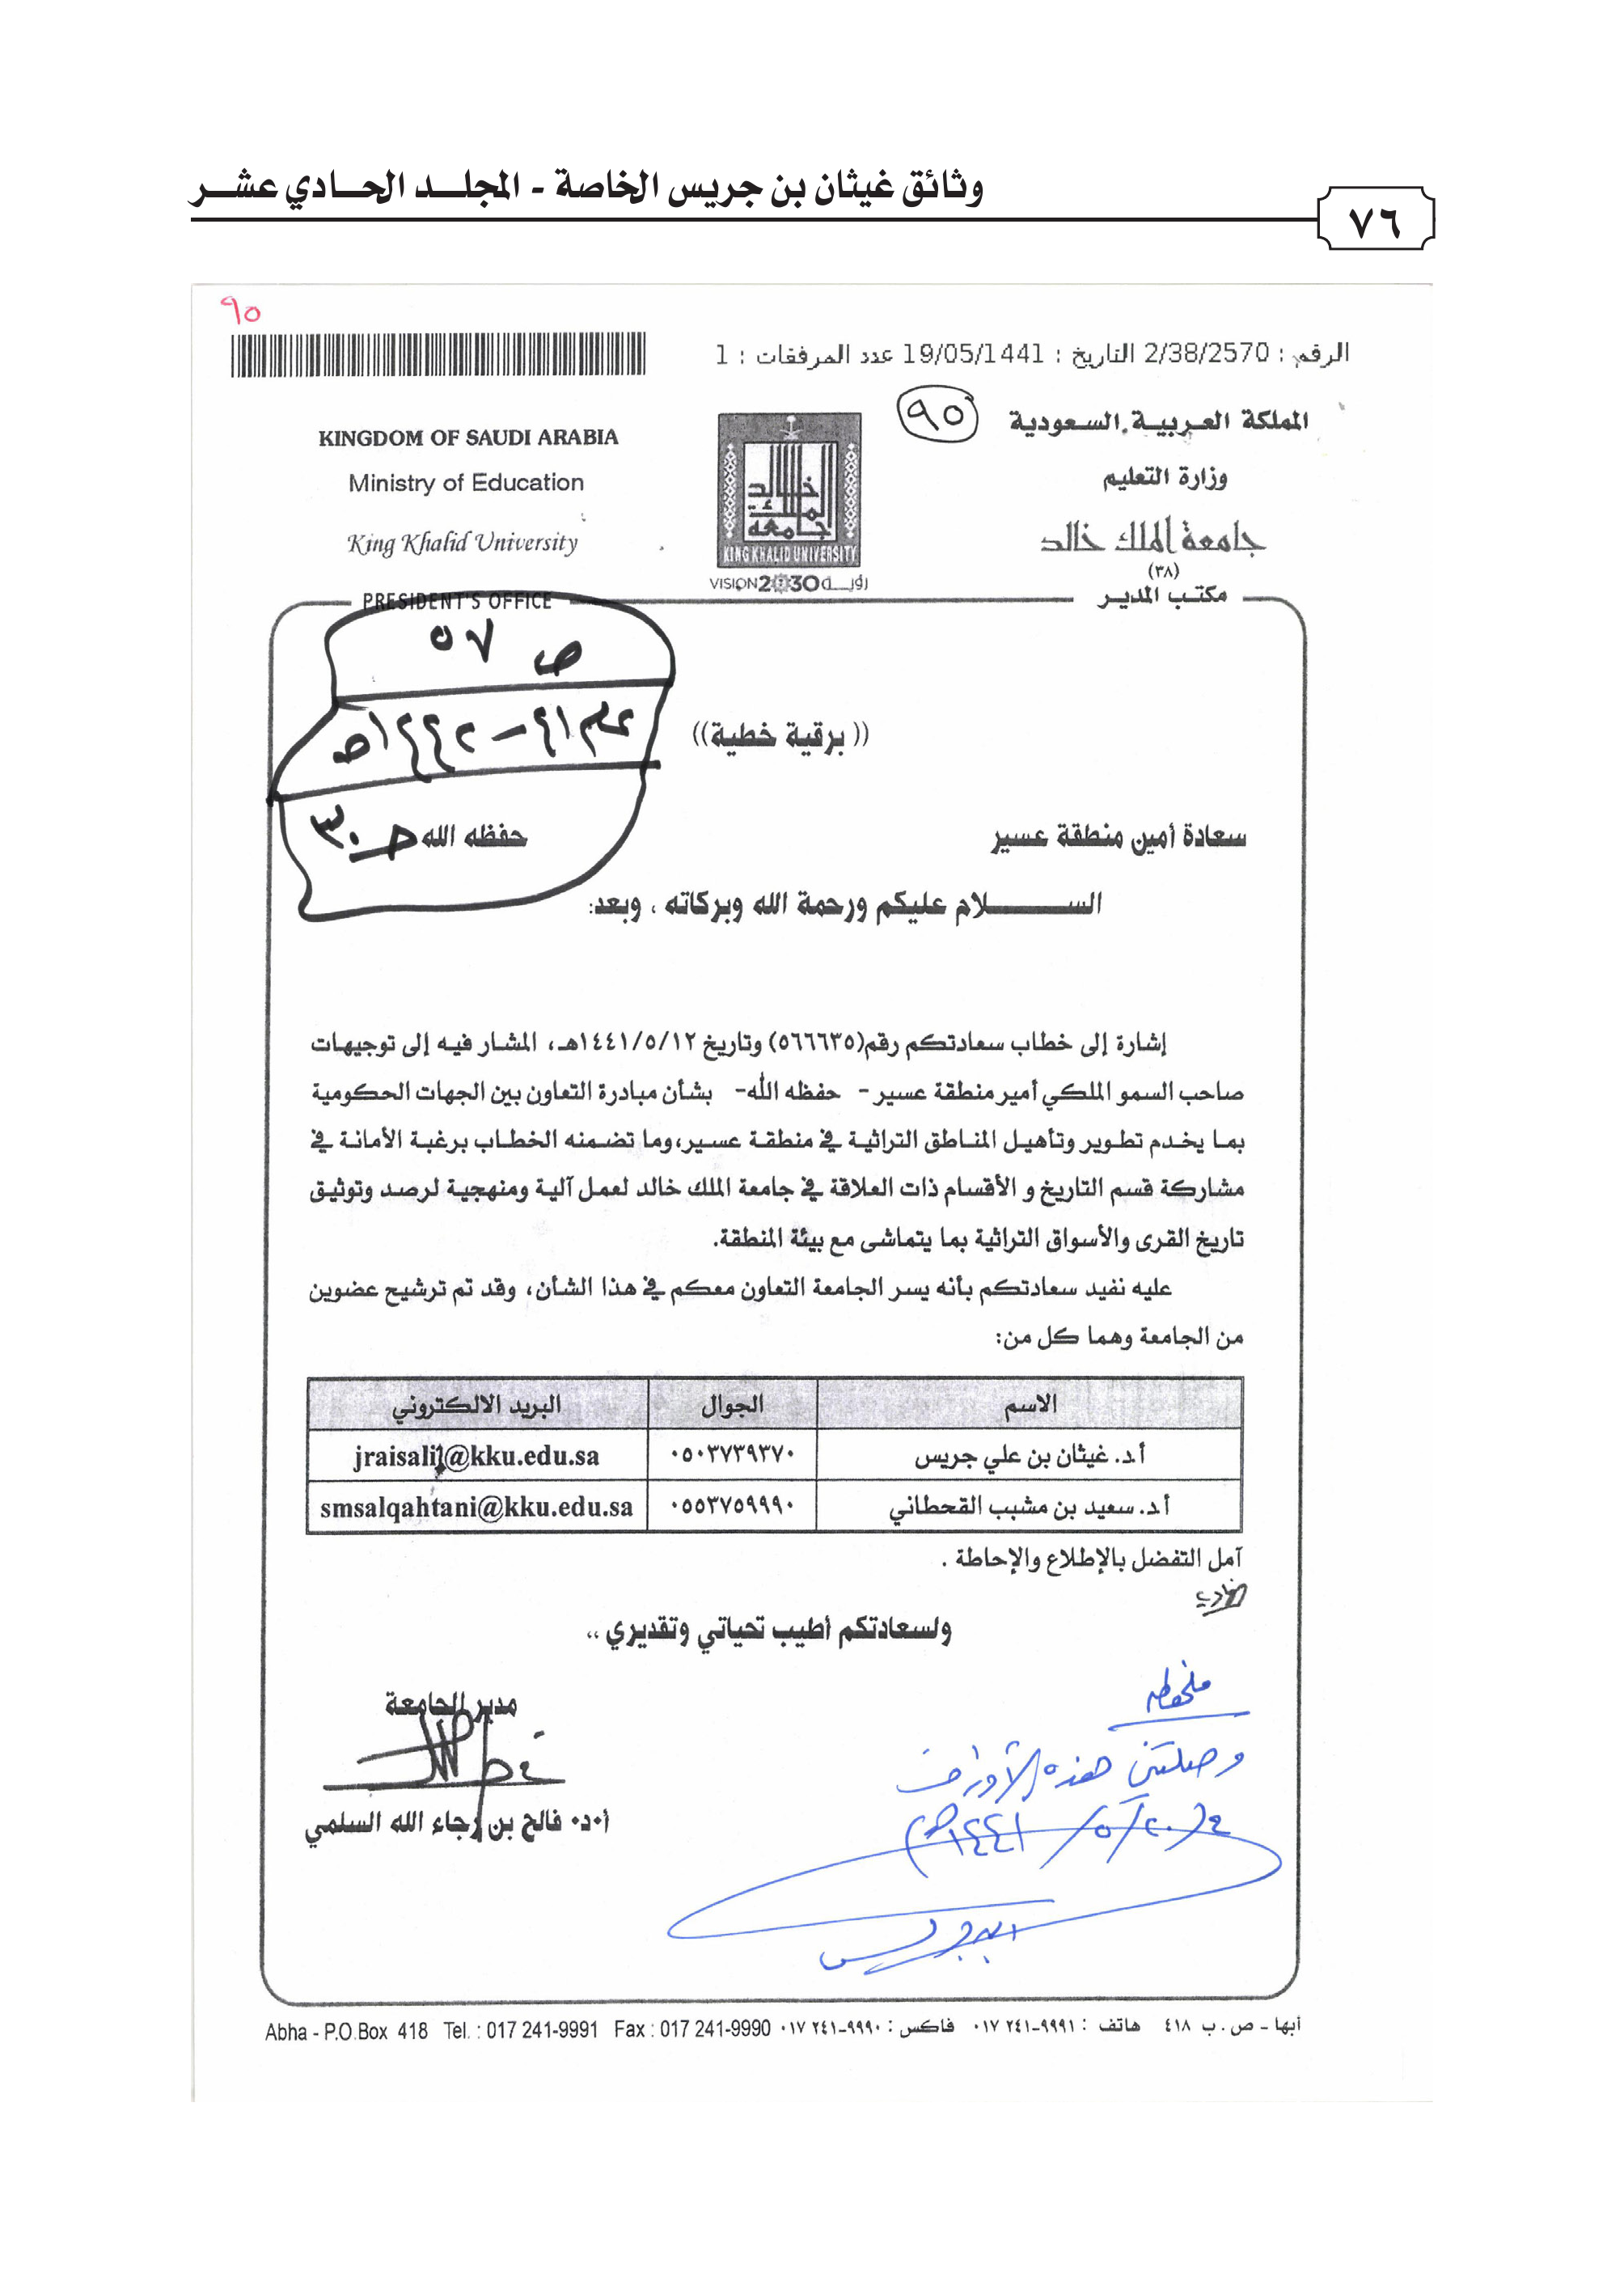 وثائق غيثان بن جريس الخاصة - المجلد الحادي عشر
٧٦
٩٥
الرقم : 2/38/2570 التاريخ : 19/05/1441 عدد المرفقات : 1
٩٥
المملكة العربية السعودية
وزارة التعليم
جامعة الملك خالد
(٣٨)
مكتب المدير
KINGDOM OF SAUDI ARABIA
Ministry of Education
King Khalid University
PRESIDENT'S OFFICE
جامعة الملك خالد
KING KHALID UNIVERSITY
VISION 2030 رؤية
ص ٥٧
((برقية خطية))
سعادة أمين منطقة عسير
حفظه الله
الســـــلام عليكم ورحمة الله وبركاته ، وبعد:
إشارة إلى خطاب سعادتكم رقم(٥٦٦٦٣٥) وتاريخ ١٤٤١/٥/١٢هـ، المشار فيه إلى توجيهات
صاحب السمو الملكي أمير منطقة عسير - حفظه الله- بشأن مبادرة التعاون بين الجهات الحكومية
بما يخدم تطوير وتأهيل المناطق التراثية في منطقة عسير،وما تضمنه الخطاب برغبة الأمانة في
مشاركة قسم التاريخ و الأقسام ذات العلاقة في جامعة الملك خالد لعمل آلية ومنهجية لرصد وتوثيق
تاريخ القرى والأسواق التراثية بما يتماشى مع بيئة المنطقة.
عليه نفيد سعادتكم بأنه يسر الجامعة التعاون معكم في هذا الشأن، وقد تم ترشيح عضوين
من الجامعة وهما كل من:
الاسم الجوال البريد الالكتروني
أ.د. غيثان بن علي جريس ٠٥٠٣٧٣٩٣٧٠ jraisali1@kku.edu.sa
أ.د. سعيد بن مشبب القحطاني ٠٥٥٣٧٥٩٩٩٠ smsalqahtani@kku.edu.sa
آمل التفضل بالإطلاع والإحاطة .
ولسعادتكم أطيب تحياتي وتقديري ،،
مدير الجامعة
أ.د. فالح بن رجاء الله السلمي
ملحوظة
وصلتني هذه الأوراق
ابن جريس
أبها - ص . ب ٤١٨ هاتف : ٩٩٩١-٢٤١ ٠١٧ فاكس : ٩٩٩٠-٢٤١ ٠١٧ Abha - P.O.Box 418 Tel. : 017 241-9991 Fax : 017 241-9990